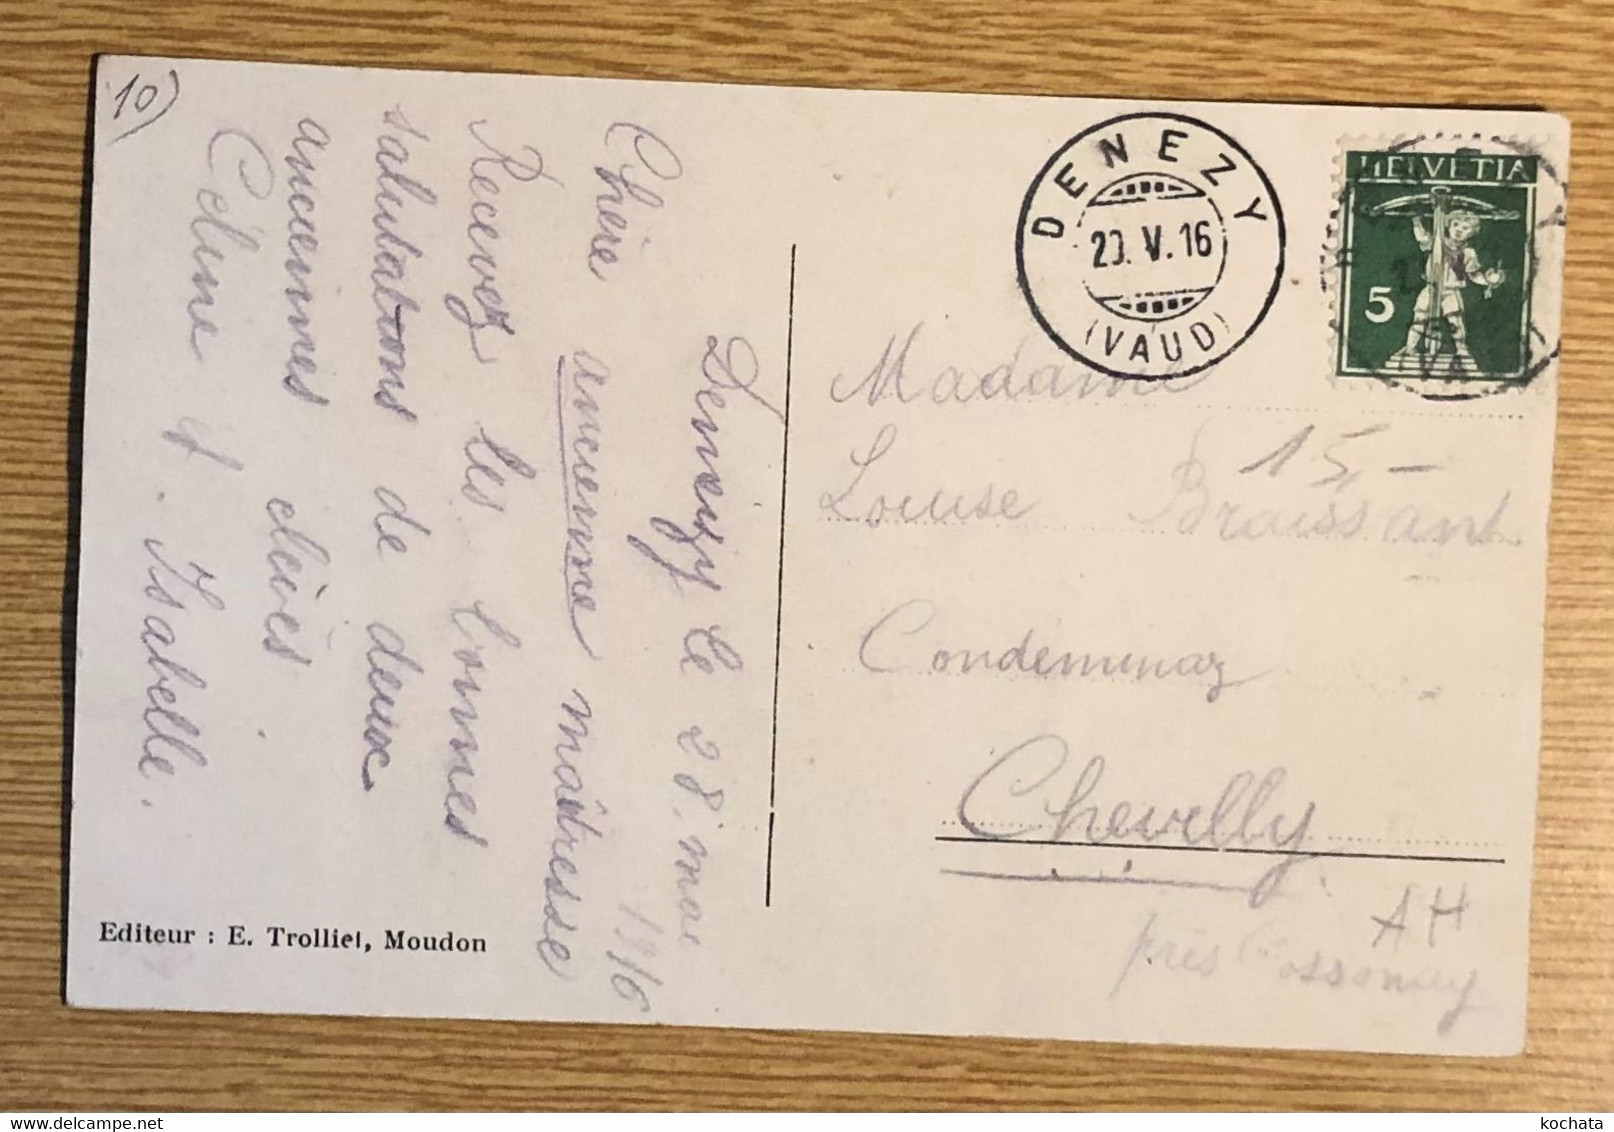 10)
Denezy le 28. mai
1916
Chère ancienne maîtresse
Recevez les bonnes
salutations de deux
anciennes élèves.
Céline & Isabelle.
Editeur : E. Trolliet, Moudon
DENEZY
20. V. 16
(VAUD)
HELVETIA
5
Madame
15,-
Louise Braissant
Condeminaz
Chevilly
AH
près Cossonay
kochata
www.delcampe.net